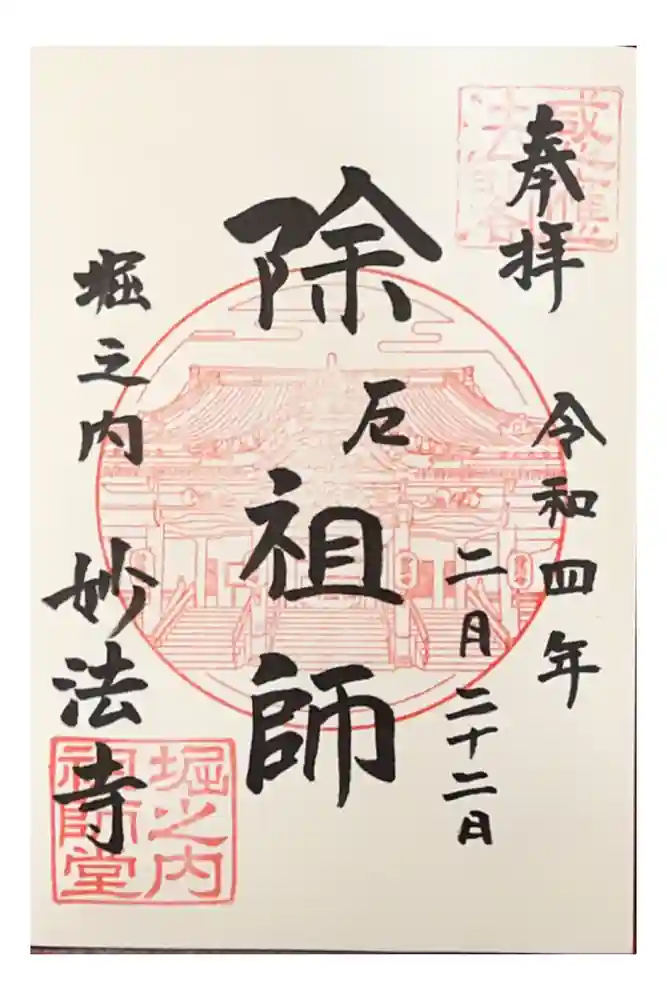 奉拝
令和四年
二月二十二日
除厄祖師
堀之内 妙法寺
堀之内
祖師堂